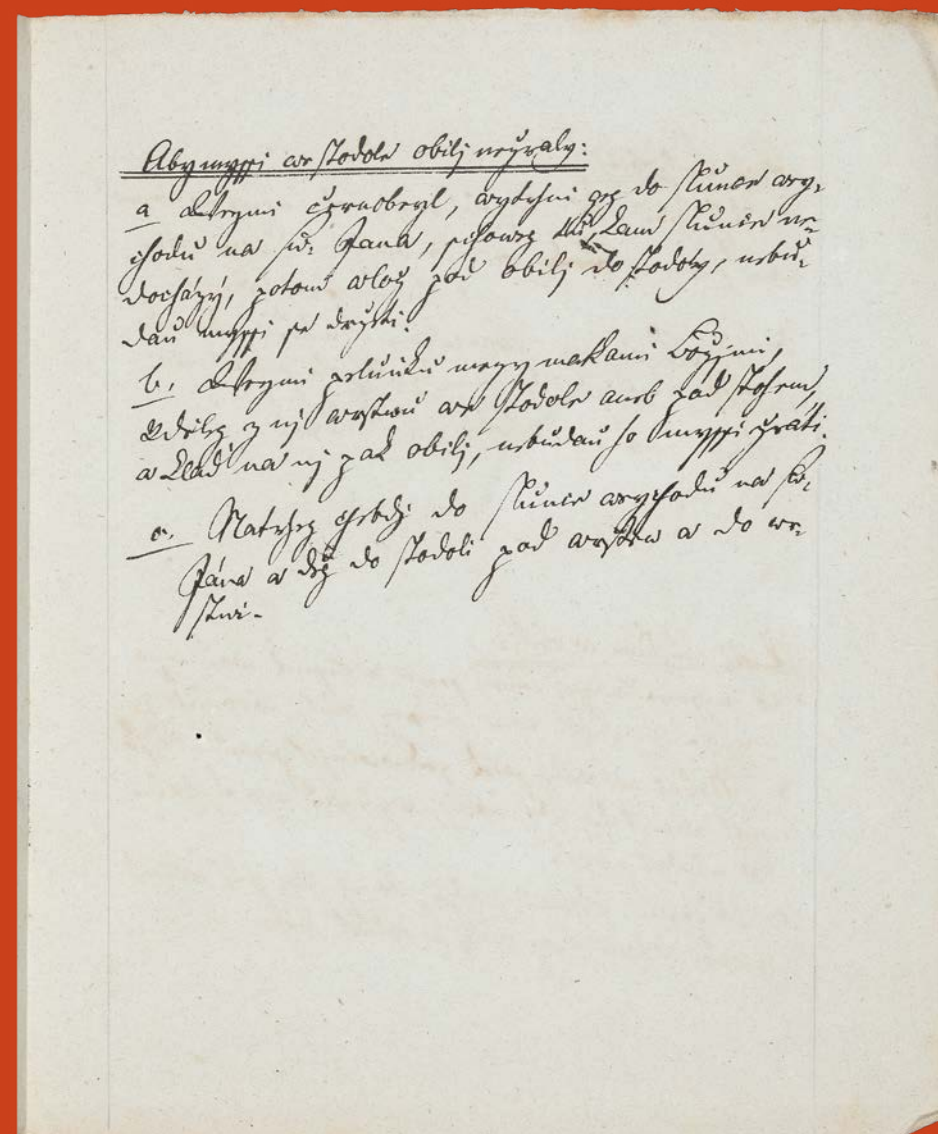 Aby myssi we stodole obilj nezraly:
a Wezmi czernobeyl, wytrhni geg do slunce wey-
chodu na sw: Jana, schoweg tu, kam slunce ne-
docházý, potom wlož pod obilj do stodoly, nebu-
dau myssi se držeti.
b. Wezmi pelunku mezy matkami Božjmi,
Udeleg z nj wrstwu we stodole aneb pod stohem,
a klad na nj pak obilj, nebudau ho myssi zrati.
c. Natrheg chebdj do slunce weychodu na sw.
Jána a dég do stodoli pod wrstew a do wr-
stwi.